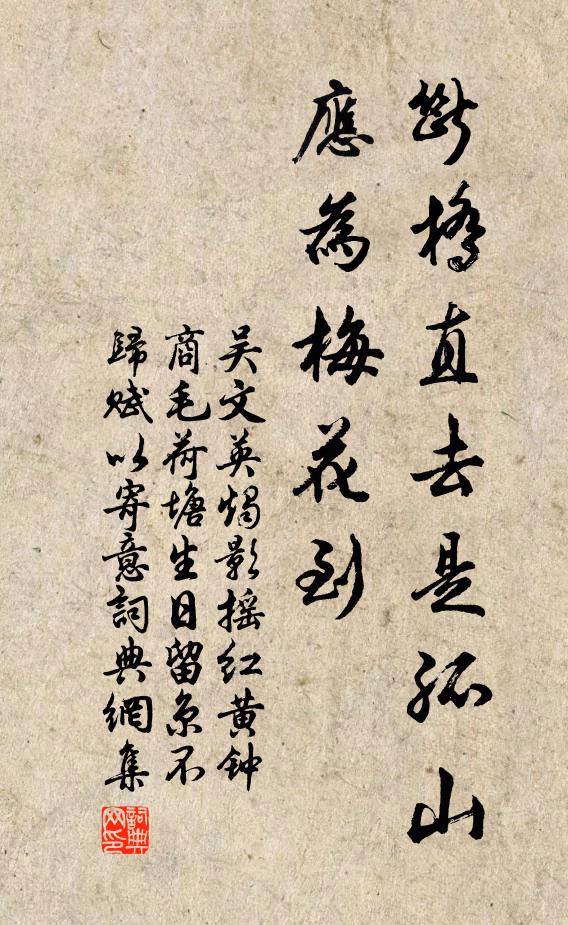 斷橋直去是孤山
應為梅花到
吴文英燭影摇红黄钟
商毛荷塘生日留京不
歸賦以寄意詞典網集
詞典
网印